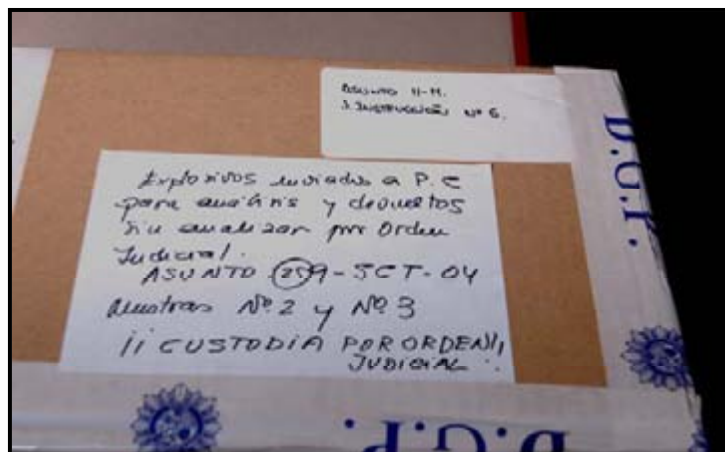 ASUNTO 11-M.
J. INSTRUCCIÓN Nº 6.
Explosivos enviados a P.C
para análisis y devueltos
sin analizar por Orden
Judicial.
ASUNTO 259-SCT-04
Muestras Nº 2 y Nº 3
¡¡ CUSTODIA POR ORDEN
JUDICIAL
D.G.P.
D.G.P.